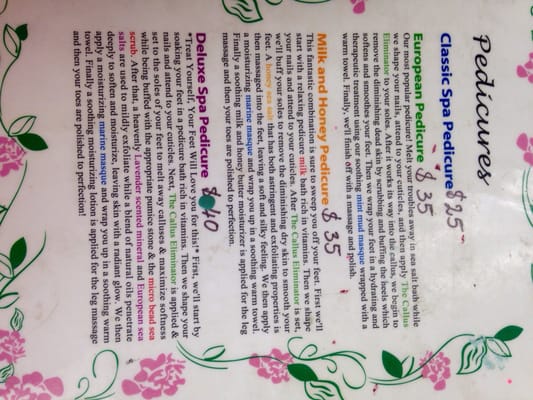 Pedicures
Classic Spa Pedicure $25
European Pedicure $35
Our most popular pedicure! Melt your troubles away in sea salt bath while
we shape your nails, attend to your cuticles, and then apply The Callus
Eliminator to your soles. After it works its way into the callus, we begin to
remove the diminishing dead skin by scrubbing and buffing the heels which
softens and soothes your feet. Then we wrap your feet in a hydrating and
therapeutic treatment using our soothing mint mud masque wrapped with a
warm towel. Finally, we'll finish off with a massage and polish.
Milk and Honey Pedicure $35
This fantastic combination is sure to sweep you off your feet. First we'll
start with a relaxing pedicure milk bath rich in vitamins. Then we shape
your nails and attend to your cuticles. After The Callus Eliminator is set,
we'll buff your soles to remove the diminishing dry skin to smooth your
feet. A honey sea salt that has both astringent and exfoliating properties is
then massaged into the feet, leaving a soft and silky feeling. We then apply
a moisturizing marine masque and wrap you up in a soothing warm towel.
Finally a soothing milk and honey butter moisturizer is applied for the leg
massage and then your toes are polished to perfection.
Deluxe Spa Pedicure $40
*Treat Yourself, Your Feet Will Love you for this!* First, we'll start by
soaking your feet in a pedicure bath rich in vitamins. Then we shape your
nails and attend to your cuticles. Next, The Callus Eliminator is applied &
set to the soles of your feet to melt away calluses & maximize softness
while being buffed with the appropriate pumice stone & the micro bead sea
scrub. After that, a heavenly Lavender scented mineral and European sea
salts are used to mildly exfoliate while a blend of natural oils penetrate
deeply to soften and moisturize, leaving skin with a radiant glow. We then
apply a moisturizing marine masque and wrap you up in a soothing warm
towel. Finally a soothing moisturizing lotion is applied for the leg massage
and then your toes are polished to perfection!